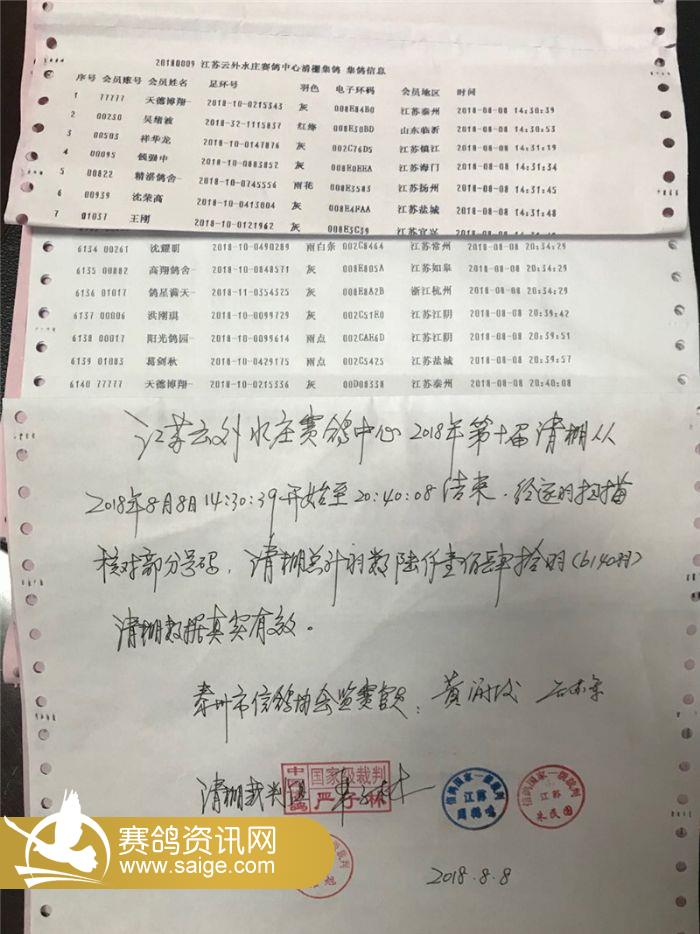 20180009 江苏云外水庄赛鸽中心清棚集鸽 集鸽信息
序号 会员账号 会员姓名 足环号 羽色 电子环码 会员地区 时间
1 77777 天德博翔- 2018-10-0215343 灰 008E84B0 江苏泰州 2018-08-08 14:30:39
2 00230 吴绪波 2018-32-1115837 红绛 008E30BD 山东临沂 2018-08-08 14:30:53
3 00503 祥华龙 2018-10-0147876 灰 002C76D5 江苏镇江 2018-08-08 14:31:19
4 00095 钱强中 2018-10-0883852 灰 008E0EEA 江苏海门 2018-08-08 14:31:34
5 00822 精湛鸽舍- 2018-10-0745556 雨花 008E3583 江苏扬州 2018-08-08 14:31:45
6 00939 沈荣高 2018-10-0413004 灰 008E4FAA 江苏盐城 2018-08-08 14:31:48
7 01037 王刚 2018-10-0121962 灰 008E3C39 江苏宜兴
6134 00261 沈耀明 2018-10-0490289 雨白条 002C8464 江苏常州 2018-08-08 20:34:29
6135 00882 高翔鸽舍- 2018-10-0848571 灰 008E805A 江苏如皋 2018-08-08 20:34:29
6136 01017 鸽星满天- 2018-11-0354325 灰 008E8A2B 浙江杭州 2018-08-08 20:34:29
6137 00006 洪刚琪 2018-10-0099729 灰 002C51E0 江苏江阴 2018-08-08 20:39:42
6138 00017 阳光鸽园- 2018-10-0099614 雨点 002CAE6D 江苏江阴 2018-08-08 20:39:51
6139 01083 葛剑秋 2018-10-0429175 雨点 002C5425 江苏盐城 2018-08-08 20:39:57
6140 77777 天德博翔- 2018-10-0215336 灰 00D08338 江苏泰州 2018-08-08 20:40:08
江苏云外水庄赛鸽中心2018年第十届清棚从
2018年8月8日14:30:39开始至20:40:08结束.经逐羽扫描
核对部分号码,清棚总计羽数陆仟壹佰肆拾羽(6140羽)
清棚数据真实有效。
泰州市信鸽协会监赛官员:黄
清棚裁判
国家级裁判
严子林
信鸽国家一级裁判
江苏
信鸽国家一级裁判
江苏
朱民国
2018.8.8
赛鸽资讯网
www.saige.com